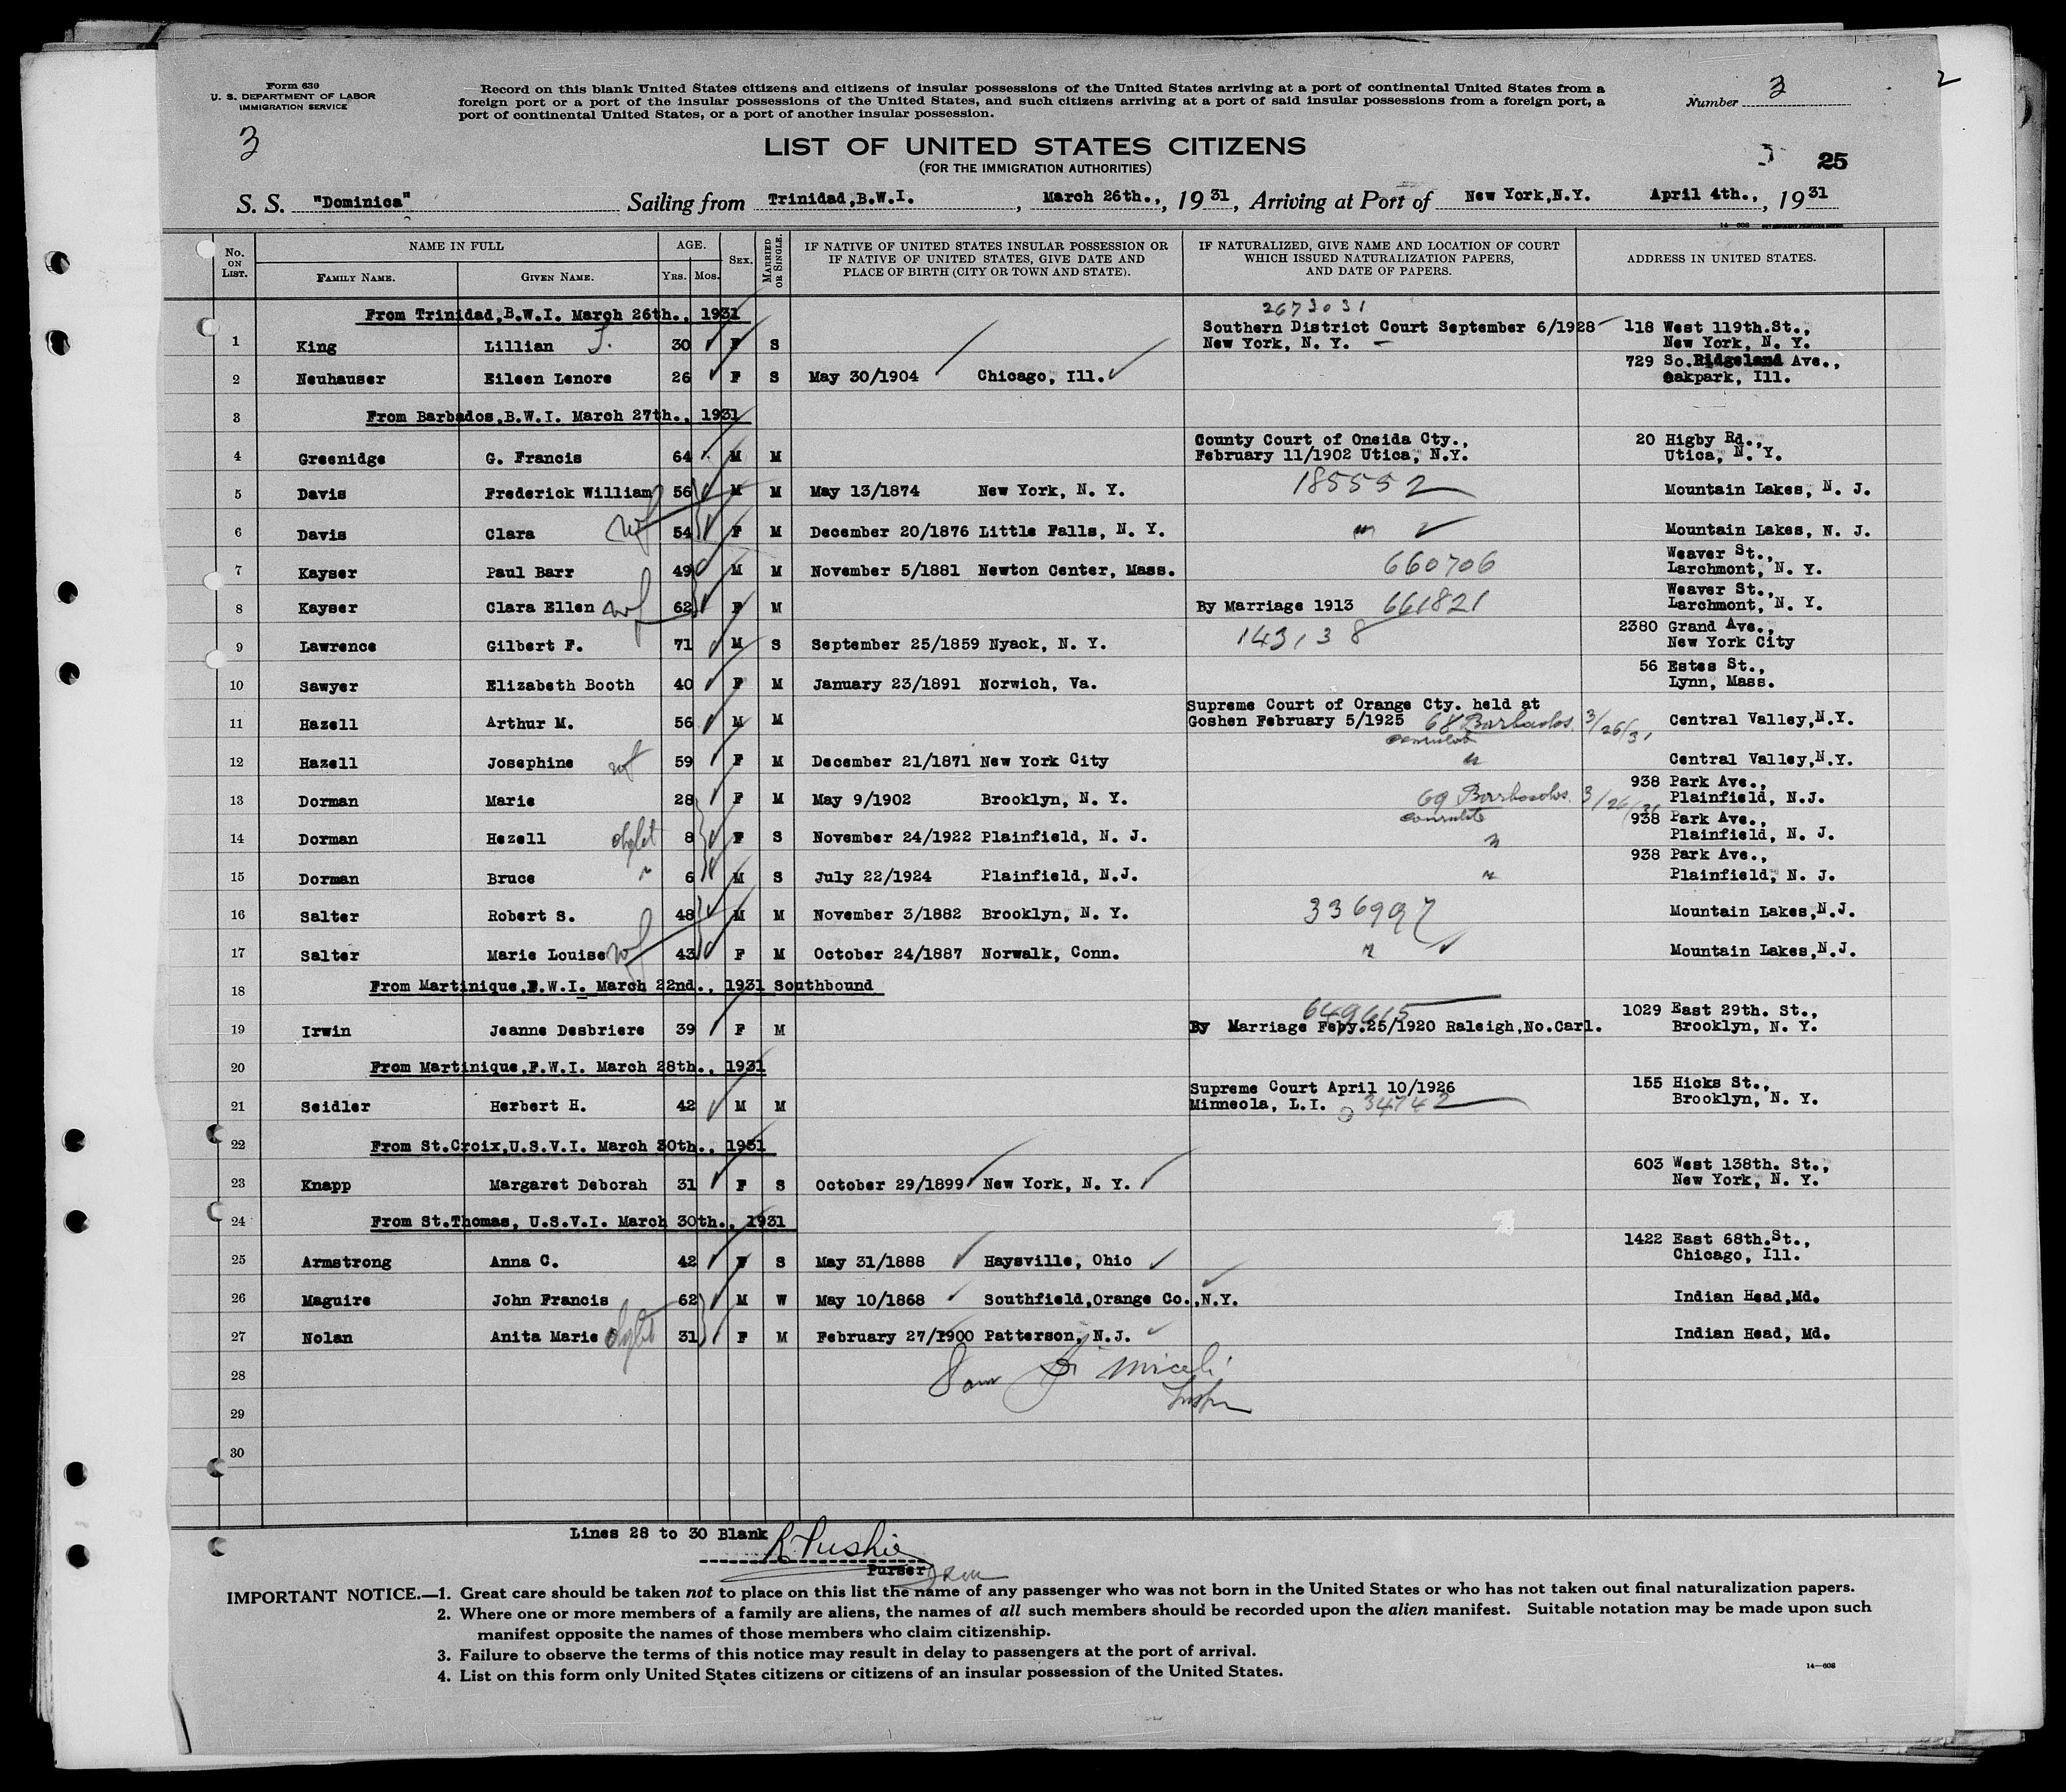 Form 630
U. S. DEPARTMENT OF LABOR
IMMIGRATION SERVICE
3
Record on this blank United States citizens and citizens of insular possessions of the United States arriving at a port of continental United States from a
foreign port or a port of the insular possessions of the United States, and such citizens arriving at a port of said insular possessions from a foreign port, a
port of continental United States, or a port of another insular possession.
Number 3
2
LIST OF UNITED STATES CITIZENS
(FOR THE IMMIGRATION AUTHORITIES)
25
S. S. "Dominica" Sailing from Trinidad,B.W.I. , March 26th., , 1931, Arriving at Port of New York,N.Y. April 4th., , 1931
No. ON LIST. NAME IN FULL FAMILY NAME. GIVEN NAME. AGE. YRS. MOS. SEX. MARRIED OR SINGLE. IF NATIVE OF UNITED STATES INSULAR POSSESSION OR IF NATIVE OF UNITED STATES, GIVE DATE AND PLACE OF BIRTH (CITY OR TOWN AND STATE). IF NATURALIZED, GIVE NAME AND LOCATION OF COURT WHICH ISSUED NATURALIZATION PAPERS, AND DATE OF PAPERS. ADDRESS IN UNITED STATES.
From Trinidad,B.W.I. March 26th., 1931
2673031
1 King Lillian J. 30 F S Southern District Court September 6/1928 New York, N. Y. 118 West 119th.St., New York, N. Y.
2 Neuhauser Eileen Lenore 26 F S May 30/1904 Chicago, Ill. 729 So. Ridgeland Ave., Oakpark, Ill.
3 From Barbados,B.W.I. March 27th., 1931
4 Greenidge G. Francis 64 M M County Court of Oneida Cty., February 11/1902 Utica, N.Y. 20 Higby Rd., Utica, N. Y.
5 Davis Frederick William 56 M M May 13/1874 New York, N. Y. 185552 Mountain Lakes, N. J.
6 Davis Clara wf 54 F M December 20/1876 Little Falls, N. Y. " Mountain Lakes, N. J.
7 Kayser Paul Barr 49 M M November 5/1881 Newton Center, Mass. 660706 Weaver St., Larchmont, N. Y.
8 Kayser Clara Ellen wf 62 F M By Marriage 1913 661821 Weaver St., Larchmont, N. Y.
9 Lawrence Gilbert F. 71 M S September 25/1859 Nyack, N. Y. 143138 2380 Grand Ave., New York City
10 Sawyer Elizabeth Booth 40 F M January 23/1891 Norwich, Va. 56 Estes St., Lynn, Mass.
11 Hazell Arthur M. 56 M M Supreme Court of Orange Cty. held at Goshen February 5/1925 68 Barbados consulate 3/26/31 Central Valley,N.Y.
12 Hazell Josephine wf 59 F M December 21/1871 New York City " Central Valley,N.Y.
13 Dorman Marie 28 F M May 9/1902 Brooklyn, N. Y. 69 Barbados consulate 3/26/31 938 Park Ave., Plainfield, N.J.
14 Dorman Hezell 8 F S November 24/1922 Plainfield, N. J. " 938 Park Ave., Plainfield, N. J.
15 Dorman Bruce " 6 M S July 22/1924 Plainfield, N.J. " 938 Park Ave., Plainfield, N. J.
16 Salter Robert S. 48 M M November 3/1882 Brooklyn, N. Y. 336997 Mountain Lakes,N.J.
17 Salter Marie Louise wf 43 F M October 24/1887 Norwalk, Conn. " Mountain Lakes,N.J.
18 From Martinique,F.W.I. March 22nd., 1931 Southbound
19 Irwin Jeanne Desbriere 39 F M 649615 By Marriage Feby.25/1920 Raleigh,No.Carl. 1029 East 29th. St., Brooklyn, N. Y.
20 From Martinique,F.W.I. March 28th., 1931
21 Seidler Herbert H. 42 M M Supreme Court April 10/1926 Minneola, L.I. 34742 155 Hicks St., Brooklyn, N. Y.
22 From St.Croix,U.S.V.I. March 30th., 1931
23 Knapp Margaret Deborah 31 F S October 29/1899 New York, N. Y. 603 West 138th. St., New York, N. Y.
24 From St.Thomas, U.S.V.I. March 30th., 1931
25 Armstrong Anna C. 42 F S May 31/1888 Haysville, Ohio 1422 East 68th.St., Chicago, Ill.
26 Maguire John Francis 62 M W May 10/1868 Southfield,Orange Co.,N.Y. Indian Head,Md.
27 Nolan Anita Marie 31 F M February 27/1900 Patterson, N.J. Indian Head, Md.
28
29
30
Lines 28 to 30 Blank
Purser
IMPORTANT NOTICE.—1. Great care should be taken not to place on this list the name of any passenger who was not born in the United States or who has not taken out final naturalization papers.
2. Where one or more members of a family are aliens, the names of all such members should be recorded upon the alien manifest. Suitable notation may be made upon such
manifest opposite the names of those members who claim citizenship.
3. Failure to observe the terms of this notice may result in delay to passengers at the port of arrival.
4. List on this form only United States citizens or citizens of an insular possession of the United States.
14—608